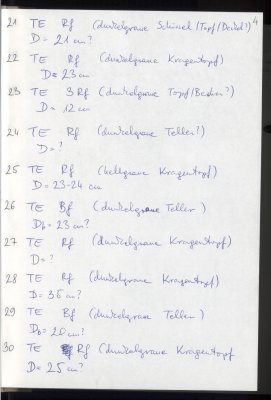 4
21 TE Rf (dunkelgraue Schüssel/Topf/Deckel?)
D = 21 cm?
22 TE Rf (dunkelgraue Kragentopf)
D = 23 cm
23 TE 3 Rf (dunkelgraue Topf/Becher?)
D = 12 cm
24 TE Rf (dunkelgraue Teller?)
D = ?
25 TE Rf (hellgraue Kragentopf)
D = 23-24 cm
26 TE Bf (dunkelgraue Teller)
Db = 23 cm?
27 TE Rf (dunkelgraue Kragentopf)
D = ?
28 TE Rf (dunkelgraue Kragentopf)
D = 36 cm?
29 TE Bf (dunkelgraue Teller)
Db = 20 cm?
30 TE Rf (dunkelgraue Kragentopf
D = 25 cm?